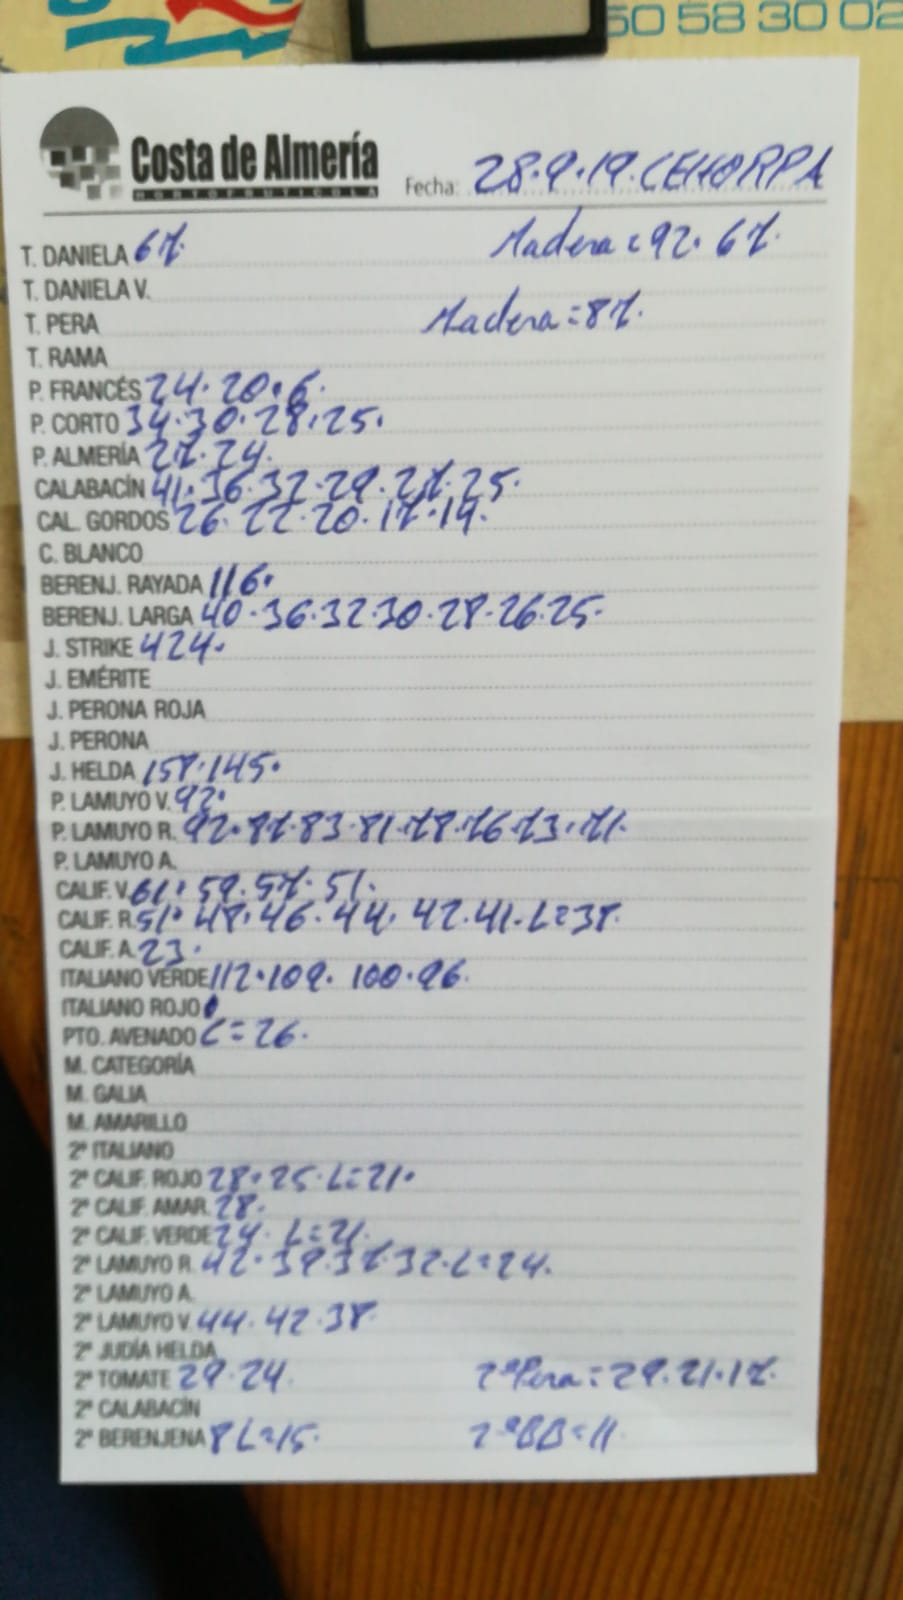 50 58 30 02
Costa de Almería
HORTOFRUTÍCOLA
Fecha: 28.9.19. CEHORPA
T. DANIELA 67 Madera = 92. 67.
T. DANIELA V.
T. PERA Madera = 87.
T. RAMA
P. FRANCÉS 24. 20. 6.
P. CORTO 34. 30. 28. 25.
P. ALMERÍA 27. 24.
CALABACÍN 41. 36. 32. 29. 27. 25.
CAL. GORDOS 26. 22. 20. 17. 19.
C. BLANCO
BERENJ. RAYADA 116.
BERENJ. LARGA 40. 36. 32. 30. 28. 26. 25.
J. STRIKE 424.
J. EMÉRITE
J. PERONA ROJA
J. PERONA
J. HELDA 158. 145.
P. LAMUYO V. 92.
P. LAMUYO R. 92. 87. 83. 81. 78. 76. 73. 71.
P. LAMUYO A.
CALIF. V. 61. 59. 57. 51.
CALIF. R. 51. 48. 46. 44. 42. 41. L=38.
CALIF. A. 23.
ITALIANO VERDE 112. 109. 100. 96.
ITALIANO ROJO
PTO. AVENADO C=26.
M. CATEGORÍA
M. GALIA
M. AMARILLO
2ª ITALIANO
2ª CALIF. ROJO 28. 25. L=21.
2ª CALIF. AMAR. 28.
2ª CALIF. VERDE 24. L=21.
2ª LAMUYO R. 42. 39. 37. 32. L=24.
2ª LAMUYO A.
2ª LAMUYO V. 44. 42. 38.
2ª JUDÍA HELDA
2ª TOMATE 29. 24. 2ª Pera = 29. 21. 17.
2ª CALABACÍN
2ª BERENJENA 8 L=15. 2ª BB = 11.